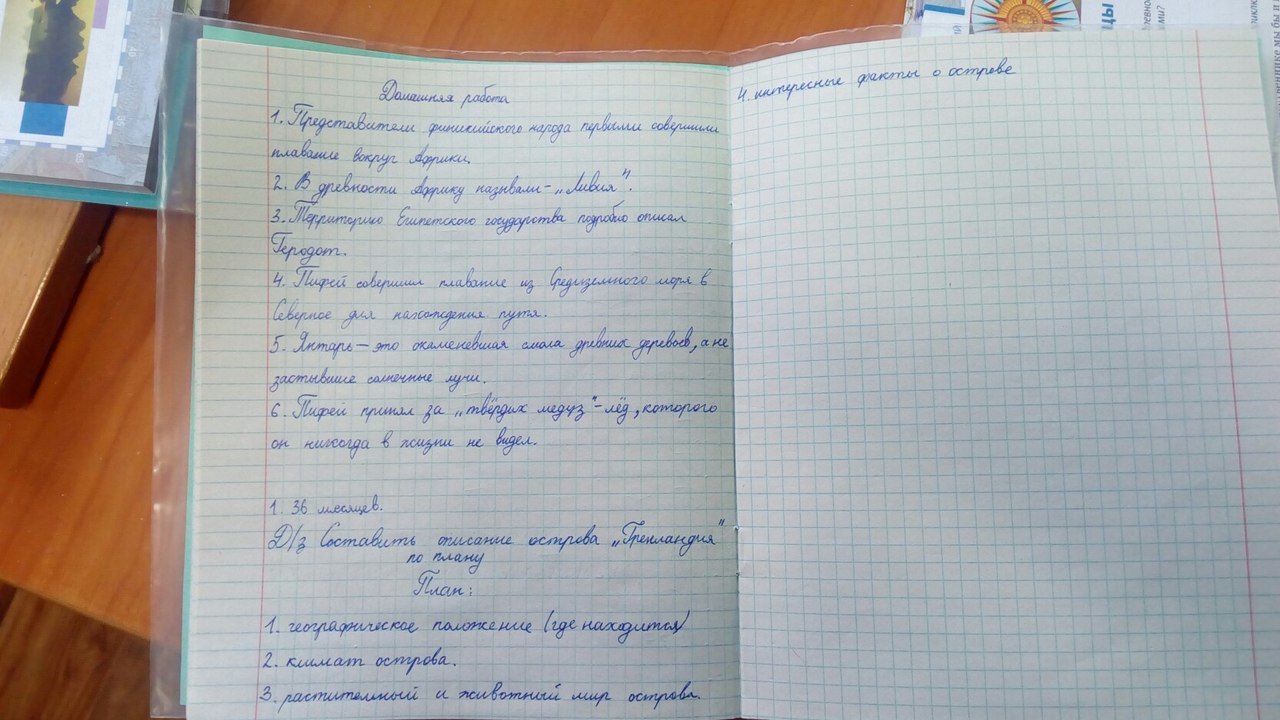 Домашняя работа
1. Представители финикийского народа первыми совершили
плавание вокруг Африки.
2. В древности Африку называли - „Ливия".
3. Территорию Египетского государства подробно описал
Геродот.
4. Пифей совершил плавание из Средиземного моря в
Северное для нахождения путя.
5. Янтарь — это окаменевшая смола древних деревьев, а не
застывшие солнечные лучи.
6. Пифей принял за „твёрдых медуз" - лёд, которого
он никогда в жизни не видел.
1. 36 месяцев.
Д/з Составить описание острова „Гренландия"
по плану
План:
1. географическое положение (где находится)
2. климат острова.
3. растительный и животный мир острова.
4. интересные факты о острове